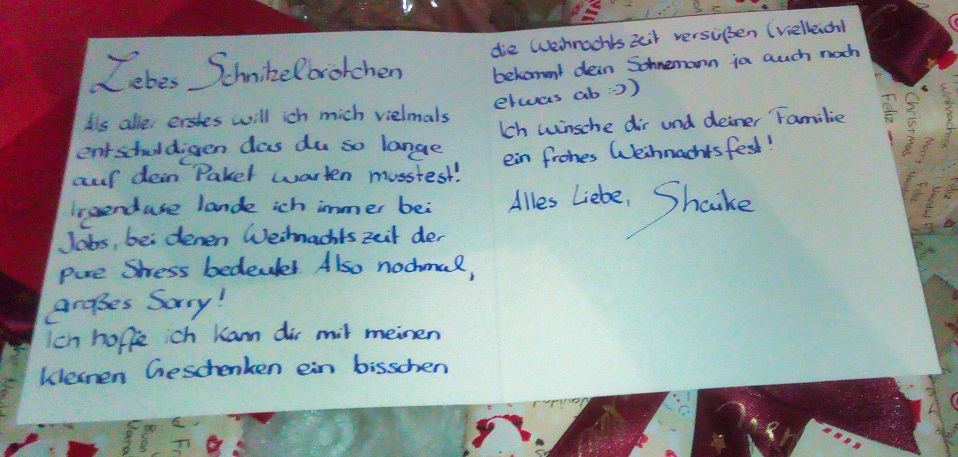 Liebes Schnitzelbrötchen
Als aller erstes will ich mich vielmals
entschuldigen das du so lange
auf dein Paket warten musstest!
Irgendwie lande ich immer bei
Jobs, bei denen Weihnachtszeit der
pure Stress bedeutet. Also nochmal,
großes Sorry!
Ich hoffe ich kann dir mit meinen
kleinen Geschenken ein bisschen
die Weihnachtszeit versüßen (vielleicht
bekommt dein Sohnemann ja auch noch
etwas ab :))
Ich wünsche dir und deiner Familie
ein frohes Weihnachtsfest!
Alles Liebe, Shaike
Christmas
Feliz